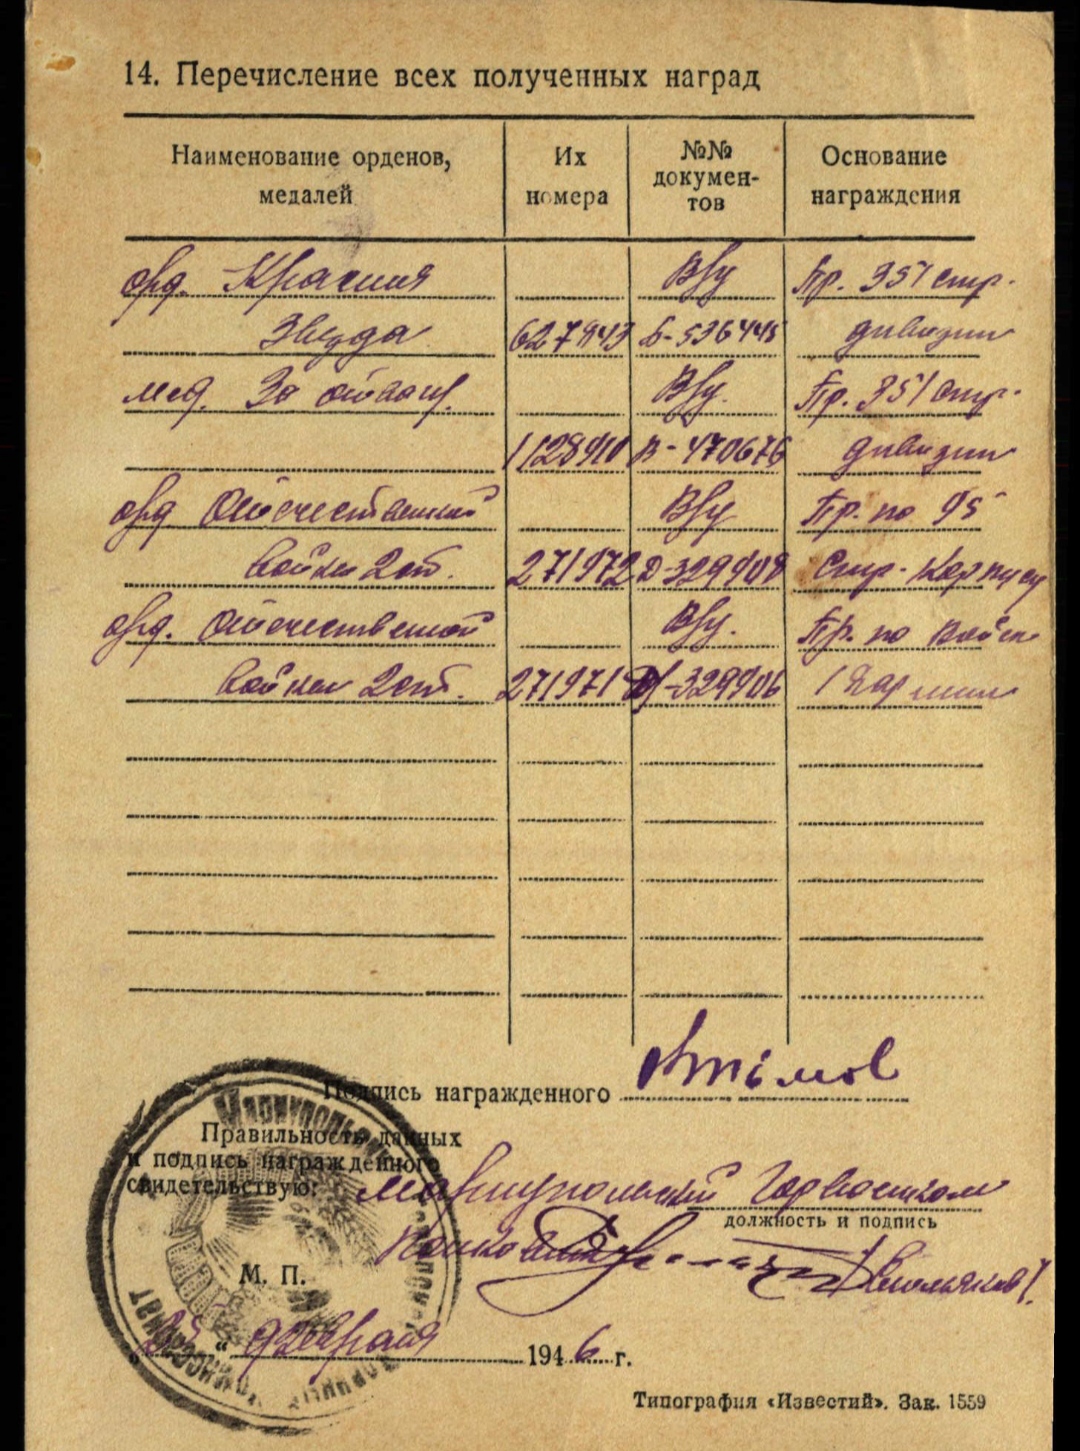 14. Перечисление всех полученных наград
Наименование орденов, медалей
Их номера
№№ докумен-тов
Основание награждения
орд. Красная В/у Пр. 351 стр.
Звезда Б-536445 дивизии
мед. За отваг. В/у. Пр. 351 стр.
В-470676 дивизии
орд Отечественной В/у Пр. по 95
войны 2 ст. 271972 Д-329908 стр. корпусу
орд. Отечественной В/у. Пр. по войск
войны 2 ст. 271971 329906 1 армии
Подпись награжденного
Правильность данных
и подпись награжденного
свидетельствую: Мариупольский Горвоенком
должность и подпись
М. П.
25 " февраля 1946 г.
Типография «Известий». Зак. 1559